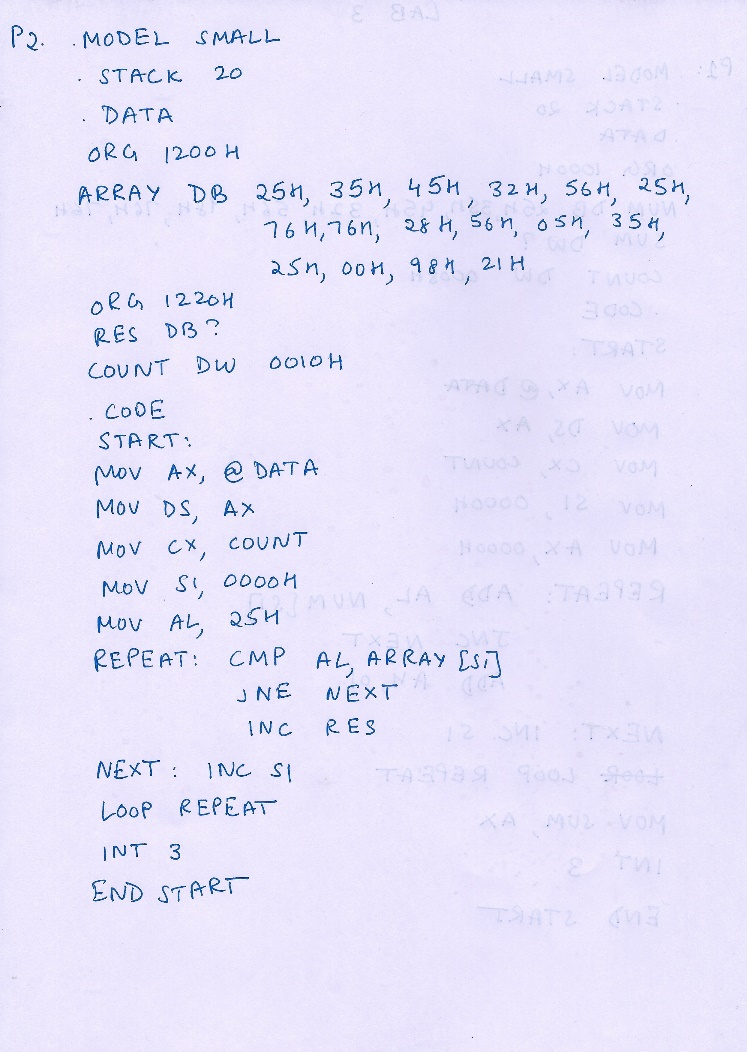 P2. .MODEL SMALL
.STACK 20
.DATA
ORG 1200H
ARRAY DB 25H, 35H, 45H, 32H, 56H, 25H,
76H, 76H, 28H, 56H, 05H, 35H,
25H, 00H, 98H, 21H
ORG 1220H
RES DB ?
COUNT DW 0010H
.CODE
START:
MOV AX, @DATA
MOV DS, AX
MOV CX, COUNT
MOV SI, 0000H
MOV AL, 25H
REPEAT: CMP AL, ARRAY [SI]
JNE NEXT
INC RES
NEXT: INC SI
LOOP REPEAT
INT 3
END START